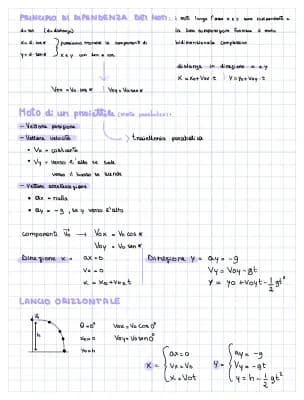 PRINCIPIO DI DIPENDENZA DEI MOTI: i moti lungo l'asse x e y sono indipendenti e
la loro composizione fornisce il moto
bidimensionale complessivo
d = vot (d = distanza)
x = d · cos α
y = d · sen α
possiamo trovare le componenti di
x e y con sen e cos
distanza in direzione x e y
x = x₀ + Vox · t | y = y₀ + Voy · t
Vox = Vo · cos α | Voy = Vo sen α
Moto di un proiettile (moto parabolico):
- Vettore posizione
- Vettore velocità
traiettoria parabolica
• Vx = costante
• Vy = verso l'alto se sale
verso il basso se scende
- Vettore accelerazione
• ax = nulla
• ay = -g, se y verso l'alto
componenti V₀ → Vox = Vo cos α
Voy = Vo sen α
Direzione x = ax = 0
Vx = 0
x = x₀ + Vox t
Direzione y = ay = -g
Vy = Voy - gt
y = y₀ + Voy t - 1/2 gt²
LANCIO ORIZZONTALE
θ = 0°
x₀ = 0
y₀ = h
Vox = Vo cos 0°
Voy = Vo sen 0°
x = { ax = 0
Vx = Vo
x = Vo t
y = { ay = -g
Vy = -gt
y = h - 1/2 gt²